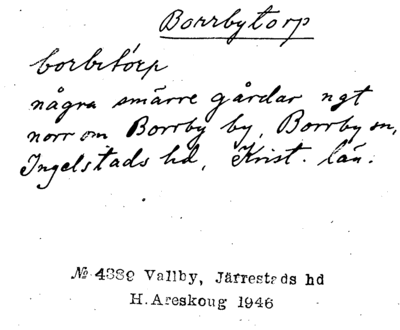 Borrbytorp
borbitórp
några smärre gårdar ngt
norr om Borrby by, Borrby sn,
Ingelstads hd, Krist. län.
№ 4889 Vallby, Järrestads hd
H. Areskoug 1946